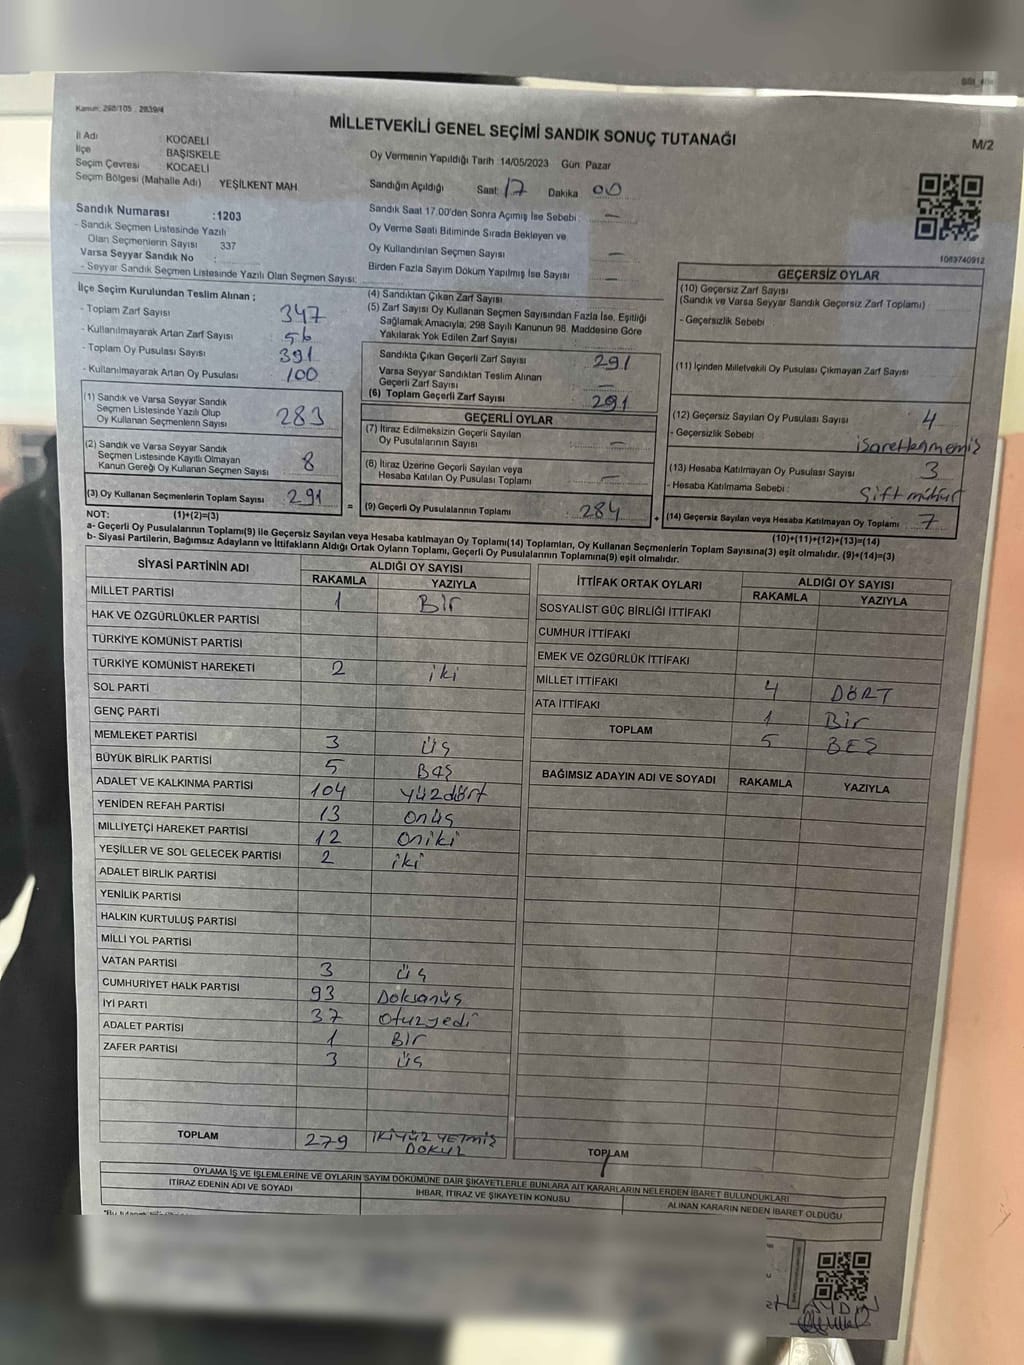 Kanun: 298/105 . 2839/4
MİLLETVEKİLİ GENEL SEÇİMİ SANDIK SONUÇ TUTANAĞI
M/2
İl Adı : KOCAELİ
İlçe : BAŞİSKELE
Seçim Çevresi : KOCAELİ
Seçim Bölgesi (Mahalle Adı) YEŞİLKENT MAH
Oy Vermenin Yapıldığı Tarih : 14/05/2023 Gün: Pazar
Sandığın Açıldığı Saat: 17 Dakika 00
Sandık Saat 17.00'den Sonra Açımış İse Sebebi : —
Oy Verme Saati Bitiminde Sırada Bekleyen ve
Oy Kullandırılan Seçmen Sayısı —
Birden Fazla Sayım Döküm Yapılmış İse Sayısı —
Sandık Numarası : 1203
- Sandık Seçmen Listesinde Yazılı
Olan Seçmenlerin Sayısı 337
Varsa Seyyar Sandık No :
- Seyyar Sandık Seçmen Listesinde Yazılı Olan Seçmen Sayısı:
1083740912
İlçe Seçim Kurulundan Teslim Alınan ;
- Toplam Zarf Sayısı 347
- Kullanılmayarak Artan Zarf Sayısı 56
- Toplam Oy Pusulası Sayısı 391
- Kullanılmayarak Artan Oy Pusulası 100
(1) Sandık ve Varsa Seyyar Sandık
Seçmen Listesinde Yazılı Olup
Oy Kullanan Seçmenlerin Sayısı 283
(2) Sandık ve Varsa Seyyar Sandık
Seçmen Listesinde Kayıtlı Olmayan
Kanun Gereği Oy Kullanan Seçmen Sayısı 8
(3) Oy Kullanan Seçmenlerin Toplam Sayısı 291
(4) Sandıktan Çıkan Zarf Sayısı
(5) Zarf Sayısı Oy Kullanan Seçmen Sayısından Fazla İse, Eşitliği
Sağlamak Amacıyla, 298 Sayılı Kanunun 98. Maddesine Göre
Yakılarak Yok Edilen Zarf Sayısı
Sandıkta Çıkan Geçerli Zarf Sayısı 291
Varsa Seyyar Sandıktan Teslim Alınan
Geçerli Zarf Sayısı —
(6) Toplam Geçerli Zarf Sayısı 291
GEÇERLİ OYLAR
(7) İtiraz Edilmeksizin Geçerli Sayılan
Oy Pusulalarının Sayısı —
(8) İtiraz Üzerine Geçerli Sayılan veya
Hesaba Katılan Oy Pusulası Toplamı —
= (9) Geçerli Oy Pusulalarının Toplamı 284 +
GEÇERSİZ OYLAR
(10) Geçersiz Zarf Sayısı
(Sandık ve Varsa Seyyar Sandık Geçersiz Zarf Toplamı)
- Geçersizlik Sebebi
(11) İçinden Milletvekili Oy Pusulası Çıkmayan Zarf Sayısı
(12) Geçersiz Sayılan Oy Pusulası Sayısı 4
- Geçersizlik Sebebi : işaretlenmemiş
(13) Hesaba Katılmayan Oy Pusulası Sayısı 3
- Hesaba Katılmama Sebebi : Çift mühür
(14) Geçersiz Sayılan veya Hesaba Katılmayan Oy Toplamı 7
NOT: (1)+(2)=(3)
(10)+(11)+(12)+(13)=(14)
a- Geçerli Oy Pusulalarının Toplamı(9) ile Geçersiz Sayılan veya Hesaba katılmayan Oy Toplamı(14) Toplamları, Oy Kullanan Seçmenlerin Toplam Sayısına(3) eşit olmalıdır. (9)+(14)=(3)
b- Siyasi Partilerin, Bağımsız Adayların ve İttifakların Aldığı Ortak Oyların Toplamı, Geçerli Oy Pusulalarının Toplamına(9) eşit olmalıdır.
SİYASİ PARTİNİN ADI ALDIĞI OY SAYISI
RAKAMLA YAZIYLA
MİLLET PARTİSİ 1 Bir
HAK VE ÖZGÜRLÜKLER PARTİSİ
TÜRKİYE KOMÜNİST PARTİSİ
TÜRKİYE KOMÜNİST HAREKETİ 2 iki
SOL PARTİ
GENÇ PARTİ
MEMLEKET PARTİSİ 3 üş
BÜYÜK BİRLİK PARTİSİ 5 Baş
ADALET VE KALKINMA PARTİSİ 104 yüzdört
YENİDEN REFAH PARTİSİ 13 onüş
MİLLİYETÇİ HAREKET PARTİSİ 12 oniki
YEŞİLLER VE SOL GELECEK PARTİSİ 2 iki
ADALET BİRLİK PARTİSİ
YENİLİK PARTİSİ
HALKIN KURTULUŞ PARTİSİ
MİLLİ YOL PARTİSİ
VATAN PARTİSİ 3 üş
CUMHURİYET HALK PARTİSİ 93 Doksanüş
İYİ PARTİ 37 otuzyedi
ADALET PARTİSİ 1 Bir
ZAFER PARTİSİ 3 üş
TOPLAM 279 İKİYÜZ YETMİŞ
DOKUZ
İTTİFAK ORTAK OYLARI ALDIĞI OY SAYISI
RAKAMLA YAZIYLA
SOSYALİST GÜÇ BİRLİĞİ İTTİFAKI
CUMHUR İTTİFAKI
EMEK VE ÖZGÜRLÜK İTTİFAKI
MİLLET İTTİFAKI 4 DÖRT
ATA İTTİFAKI 1 Bir
TOPLAM 5 BEŞ
BAĞIMSIZ ADAYIN ADI VE SOYADI RAKAMLA YAZIYLA
TOPLAM
OYLAMA İŞ VE İŞLEMLERİNE VE OYLARIN SAYIM DÖKÜMÜNE DAİR ŞİKAYETLERLE BUNLARA AİT KARARLARIN NELERDEN İBARET BULUNDUKLARI
İTİRAZ EDENİN ADI VE SOYADI İHBAR, İTİRAZ VE ŞİKAYETİN KONUSU ALINAN KARARIN NEDEN İBARET OLDUĞU
AYDIN